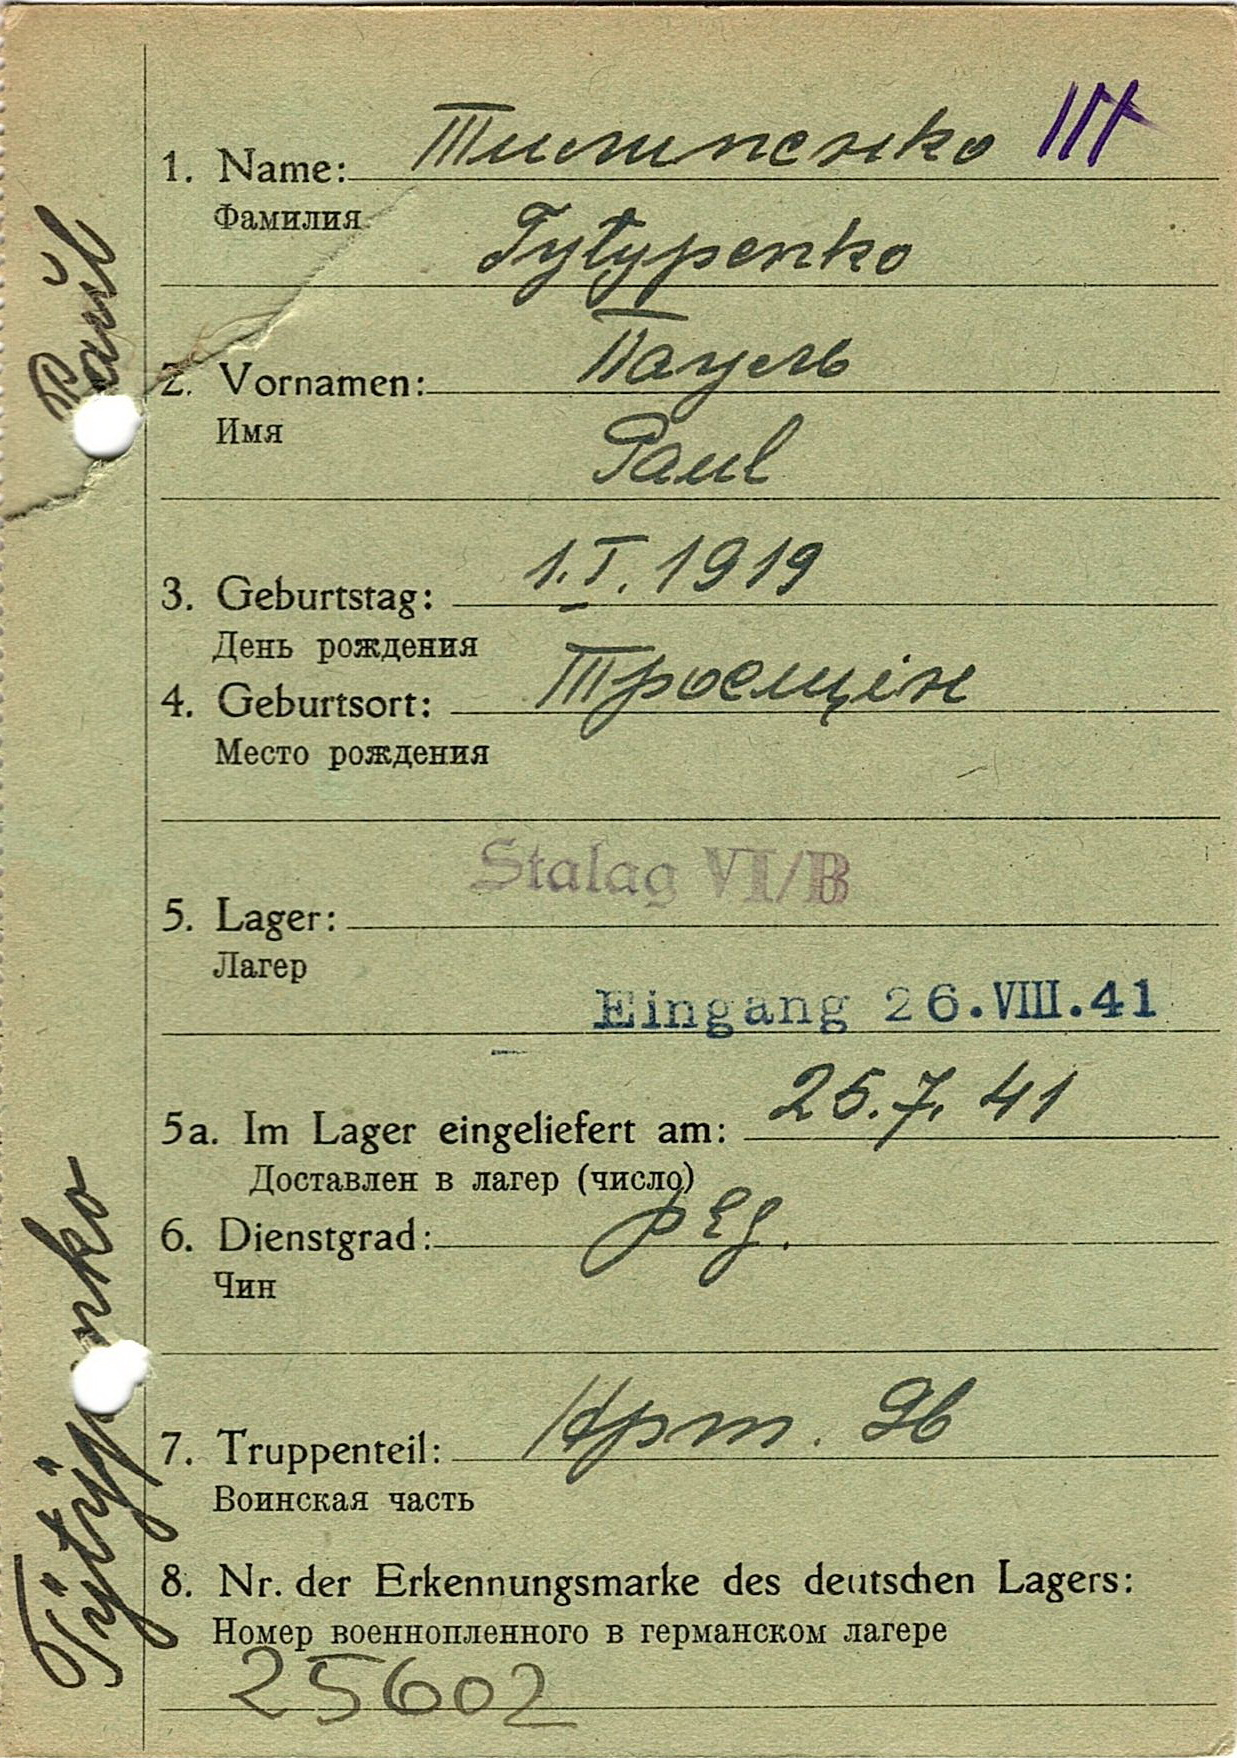 1. Name: Титипенко III
Фамилия
Tytypenko
2. Vornamen: Пауель
Имя
Paul
3. Geburtstag: 1.I.1919
День рождения
4. Geburtsort: Троещін
Место рождения
Stalag VI/B
5. Lager:
Лагер
Eingang 26.VIII.41
5a. Im Lager eingeliefert am: 25.7.41
Доставлен в лагер (число)
6. Dienstgrad:
Чин
7. Truppenteil: Арт.
Воинская часть
8. Nr. der Erkennungsmarke des deutschen Lagers:
Номер военнопленного в германском лагере
25602
Tÿtÿpenko Paŭl